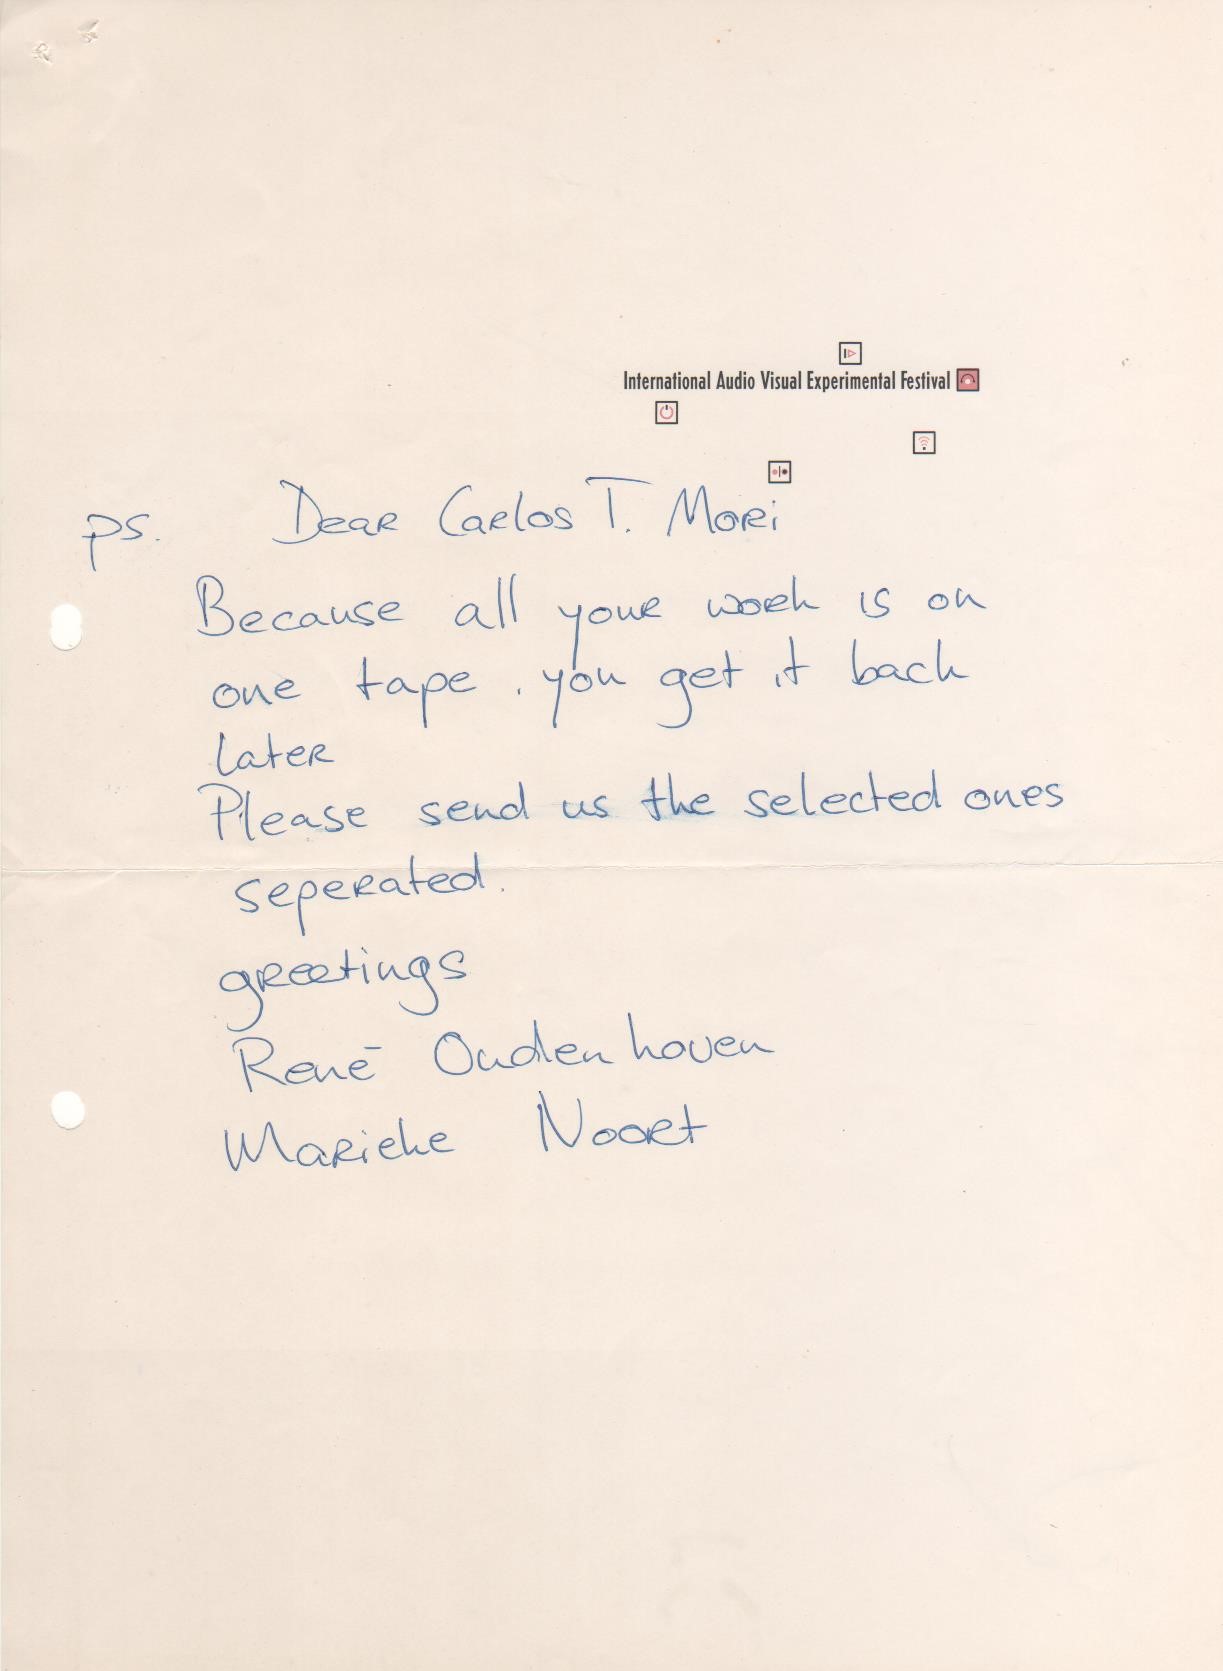 International Audio Visual Experimental Festival
ps. Dear Carlos T. Mori
Because all your work is on
one tape. you get it back
later
Please send us the selected ones
seperated.
greetings
René Oudenhoven
Marieke Noort